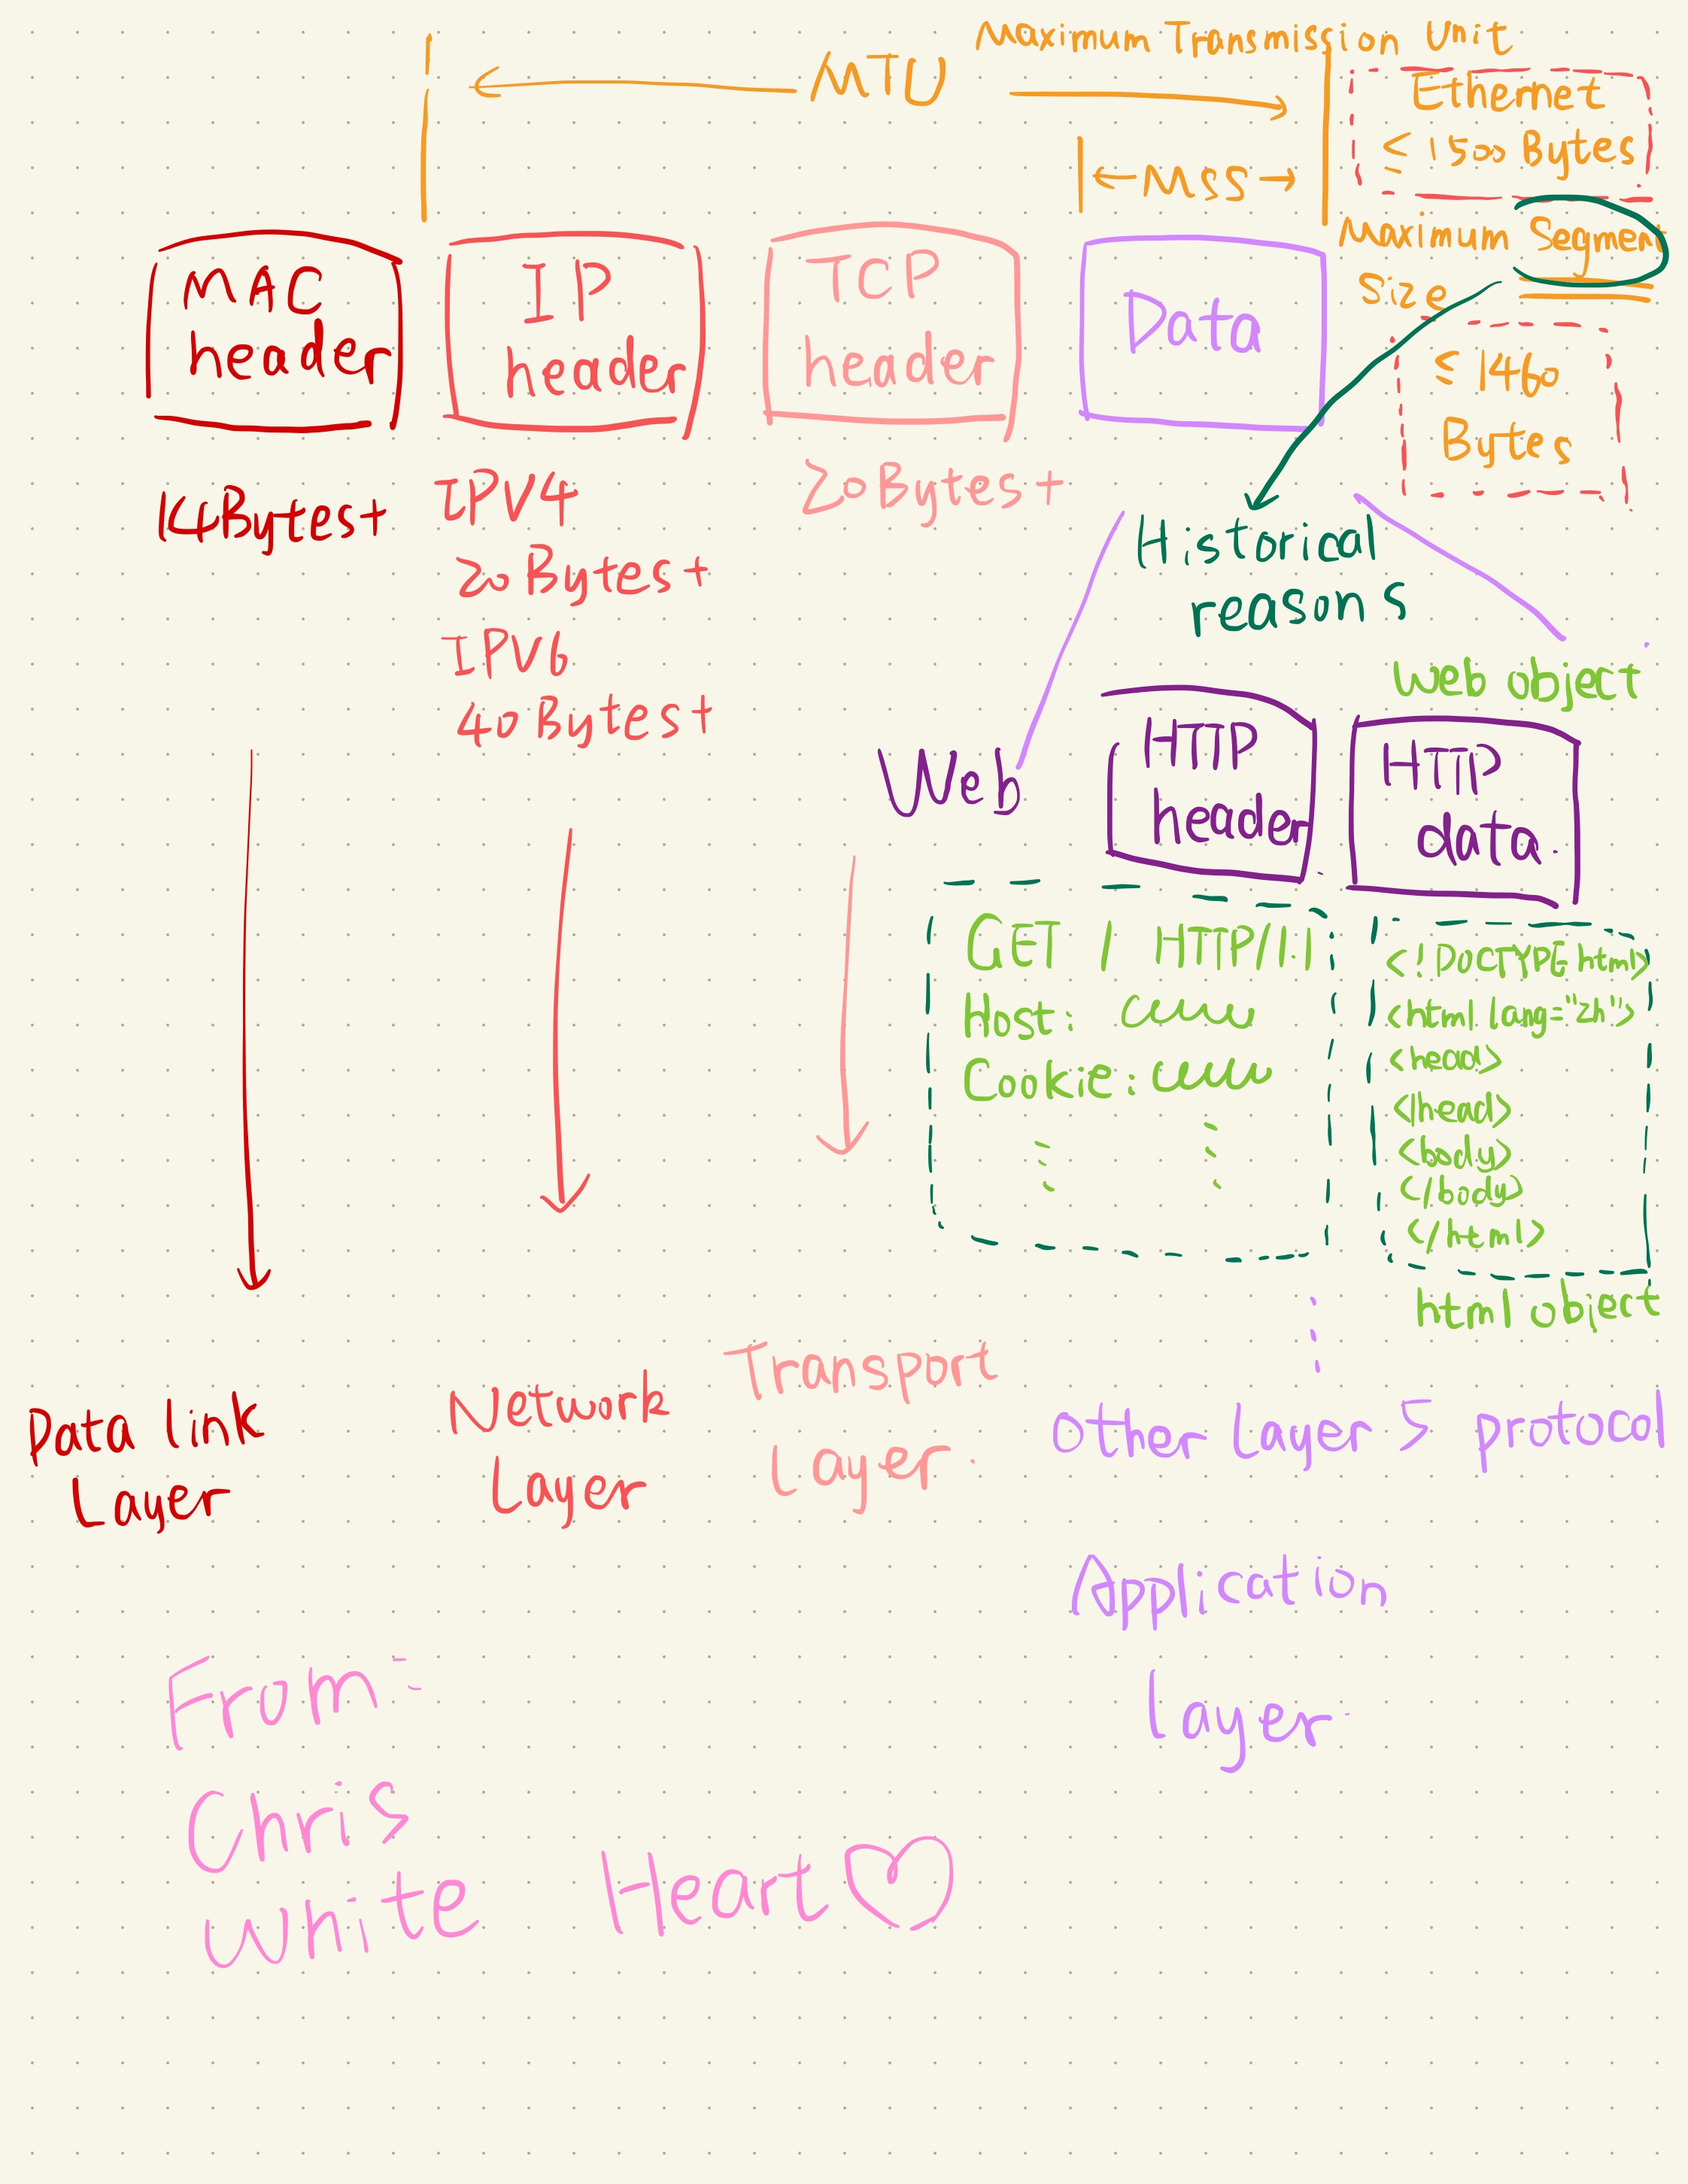 Maximum Transmission Unit
MTU
Ethernet
≤ 1500 Bytes
MSS
Maximum Segment
Size
≤ 1460
Bytes
MAC
header
IP
header
TCP
header
Data
14Bytes+
IPV4
20Bytes+
IPV6
40Bytes+
20Bytes+
Historical
reasons
Web object
Web
HTTP
header
HTTP
data.
GET / HTTP/1.1
Host:
Cookie:
<!DOCTYPE html>
<html lang="zh">
<head>
</head>
<body>
</body>
</html>
html object
Data link
Layer
Network
Layer
Transport
Layer.
Other Layer 5 protocol
Application
layer.
From:
Chris
White Heart